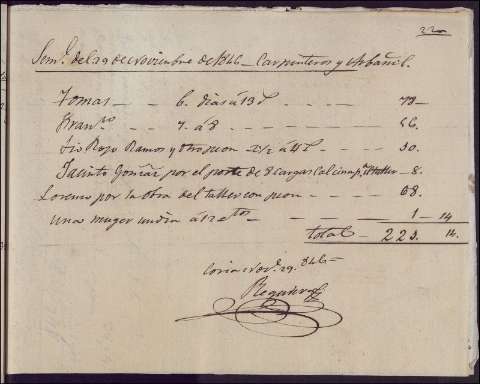 Sem.ª del 29 de Noviembre de 1846 - Carpinteros y Albañil.
Tomas - - - 6. dias á 13 r.s - - - 78 -
Fran.co - - - 7. á 8 - - - 56.
Tio Rojo Ramos y otro peon 2 1/2 á 4 r.s - 10.
Jacinto Gonz.z por el porte de 8 cargas Cal cina p.a - 8.
Lorenzo por la obra del taller con peon - 68.
una muger un dia á 12 c.tos - - - 1 - 14
total - 221. 14.
Coria Nov.e 29. 846 -